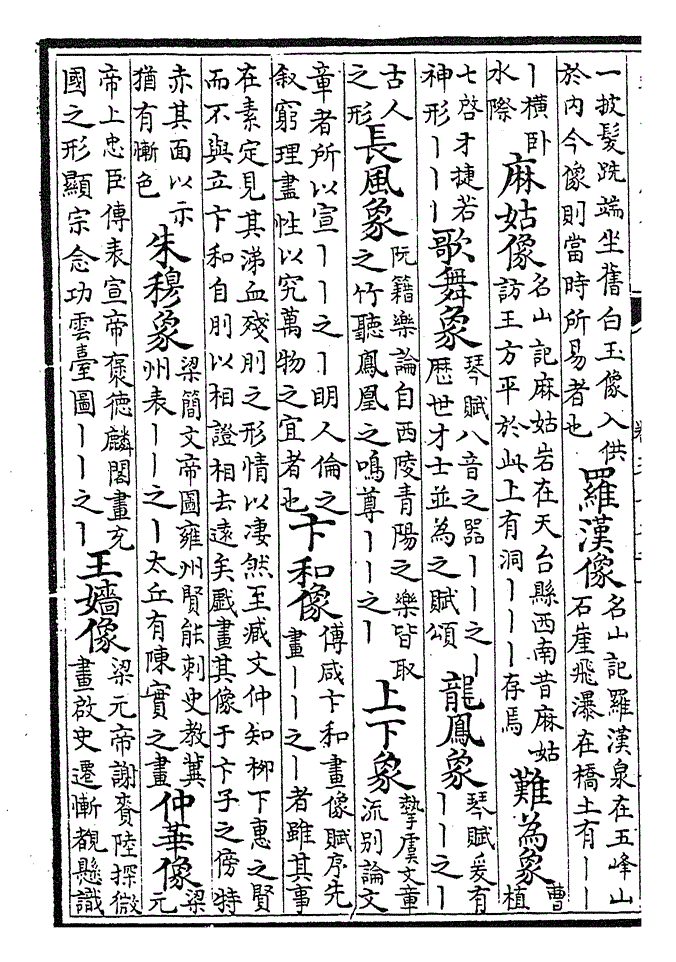 一披髮跣端坐舊白玉像入供
於内今像則當時所易者也
羅漢像
名山記羅漢泉在五峰山
石崖飛瀑在橋土有丨丨
丨横卧
水際
麻姑像
名山記麻姑岩在天台縣西南昔麻姑
訪王方平於此上有洞丨丨丨存焉
難為象
曹
植
七啓才捷若
神形丨丨丨
歌舞象
琴賦八音之器丨丨之丨
歴世才士並為之賦頌
龍鳳象
琴賦爰有
丨丨之丨
古人
之形
長風象
阮籍樂論自西陵青陽之樂皆取
之竹聽鳳凰之鳴尊丨丨之丨
上下象
摯虞文章
流别論文
章者所以宣丨丨之丨明人倫之
叙窮理盡性以究萬物之宜者也
卞和像
傅咸卞和畫像賦序先
畫丨丨之丨者雖其事
在素定見其涕血殘刖之形情以凄然至臧文仲知柳下惠之賢
而不與立卞和自刖以相證相去遠矣戲畫其像于卞子之傍特
赤其面以示
猶有慚色
朱穆象
梁簡文帝圖雍州賢能刺史教冀
州表丨丨之丨太丘有陳實之畫
仲華像
梁
元
帝上忠臣傳表宣帝褒德麟閣畫充
國之形顯宗念功雲臺圖丨丨之丨
王嬙像
梁元帝謝賚陸探微
畫啟史遷慚覩懸識